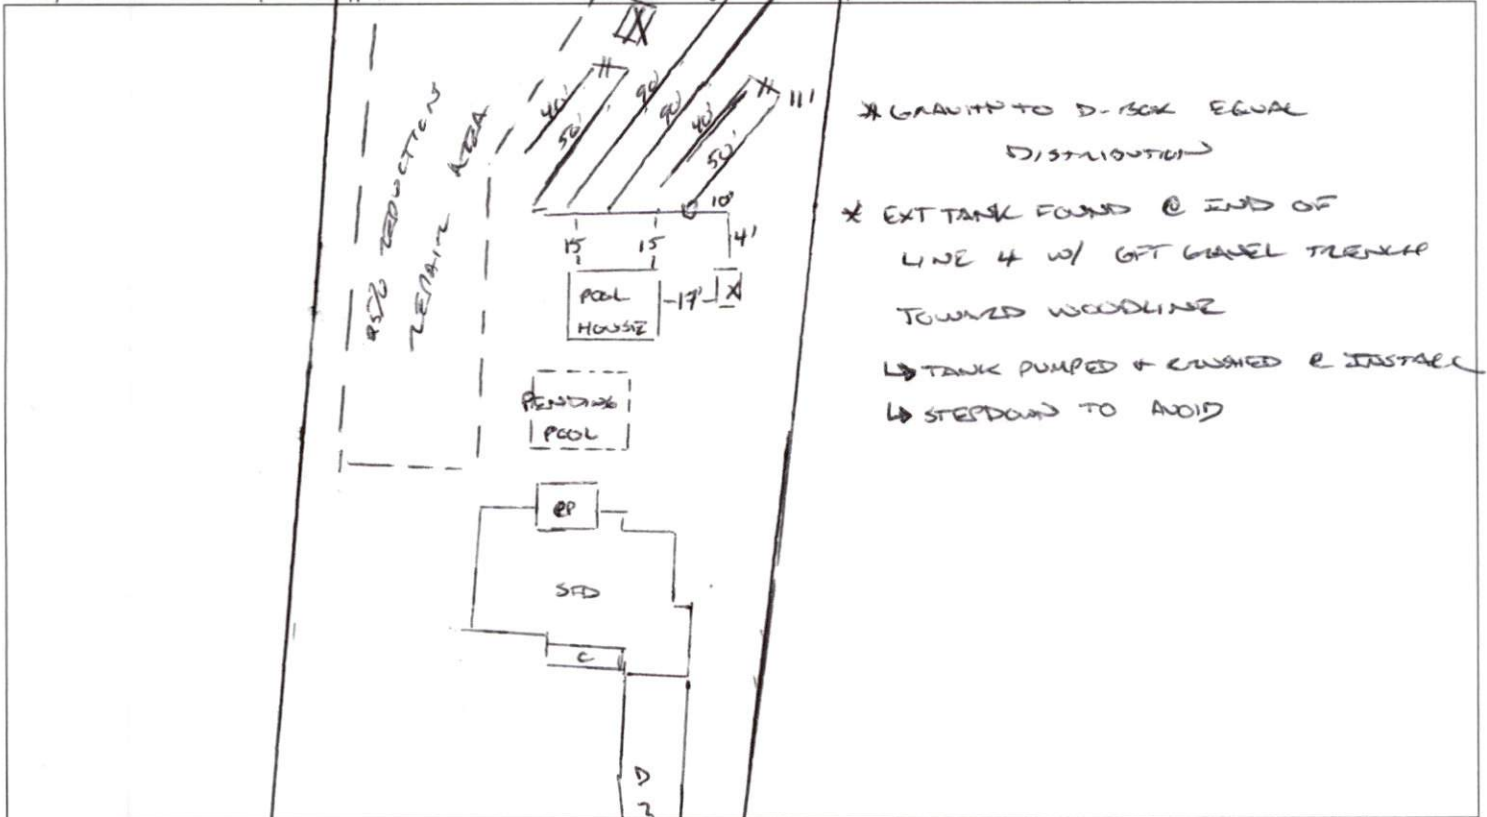 40'
50'
90'
90'
40'
50'
11'
10'
15
15
4'
POOL
HOUSE
17'
X
REPAIR AREA
PENDING
POOL
SFD
C
D
* GRAVITY TO D-BOX EQUAL
DISTRIBUTION
* EXT TANK FOUND @ END OF
LINE 4 W/ 6FT GRAVEL TRENCH
TOWARD WOODLINE
↳ TANK PUMPED & CRUSHED @ INSTALL
↳ STEPDOWN TO AVOID